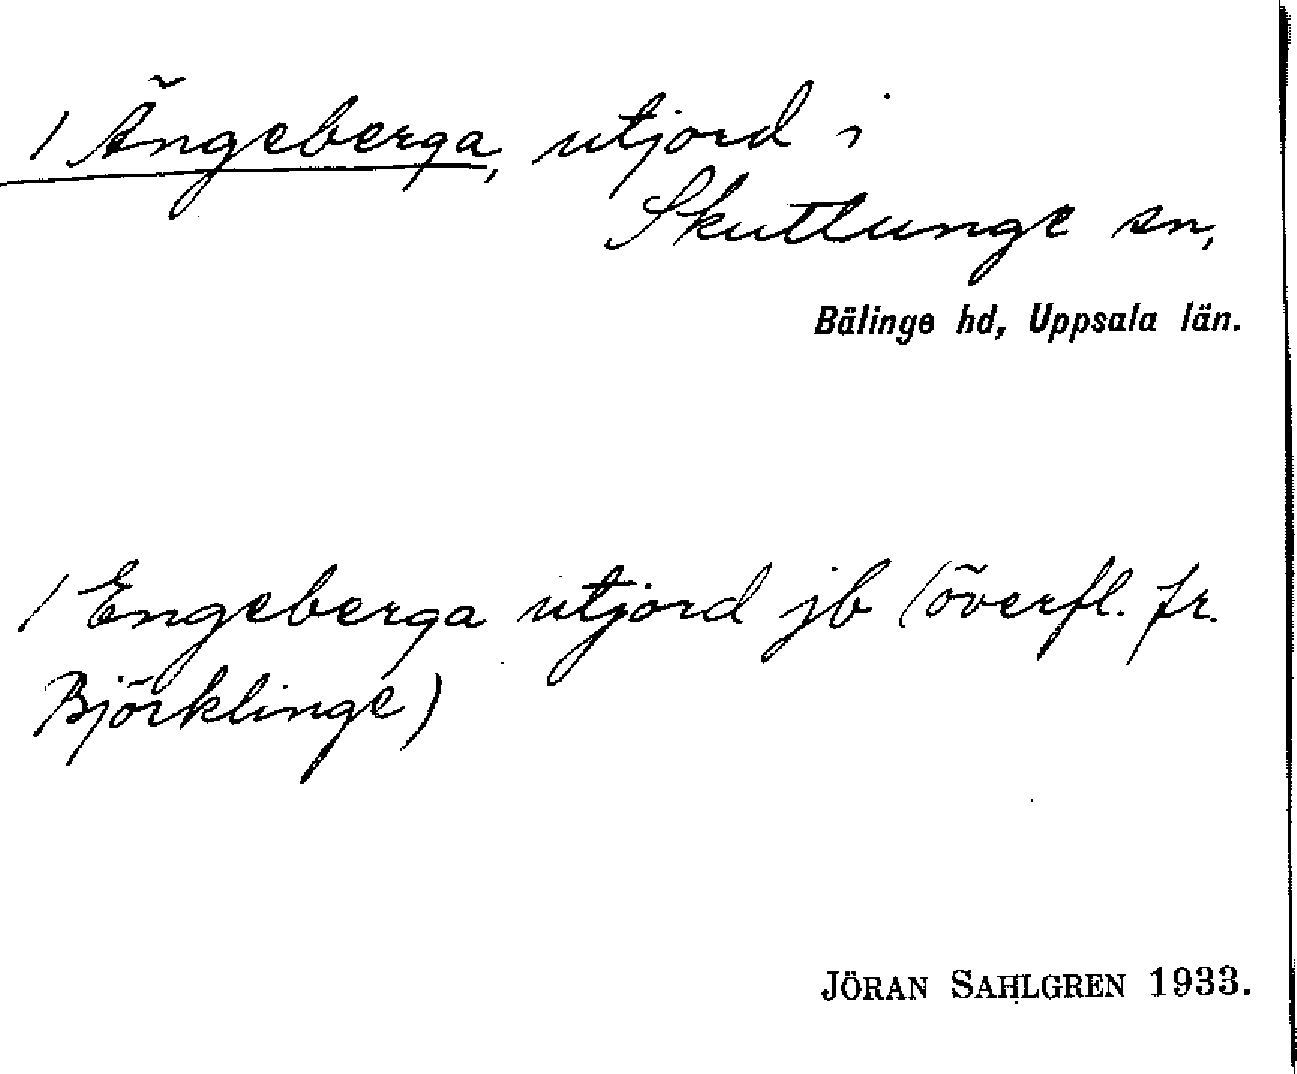 / Ängeberga, utjord i
Skuttunge sn,
Bälinge hd, Uppsala län.
/ Engeberga utjord jb (överfl. fr.
Björklinge)
JÖRAN SAHLGREN 1933.